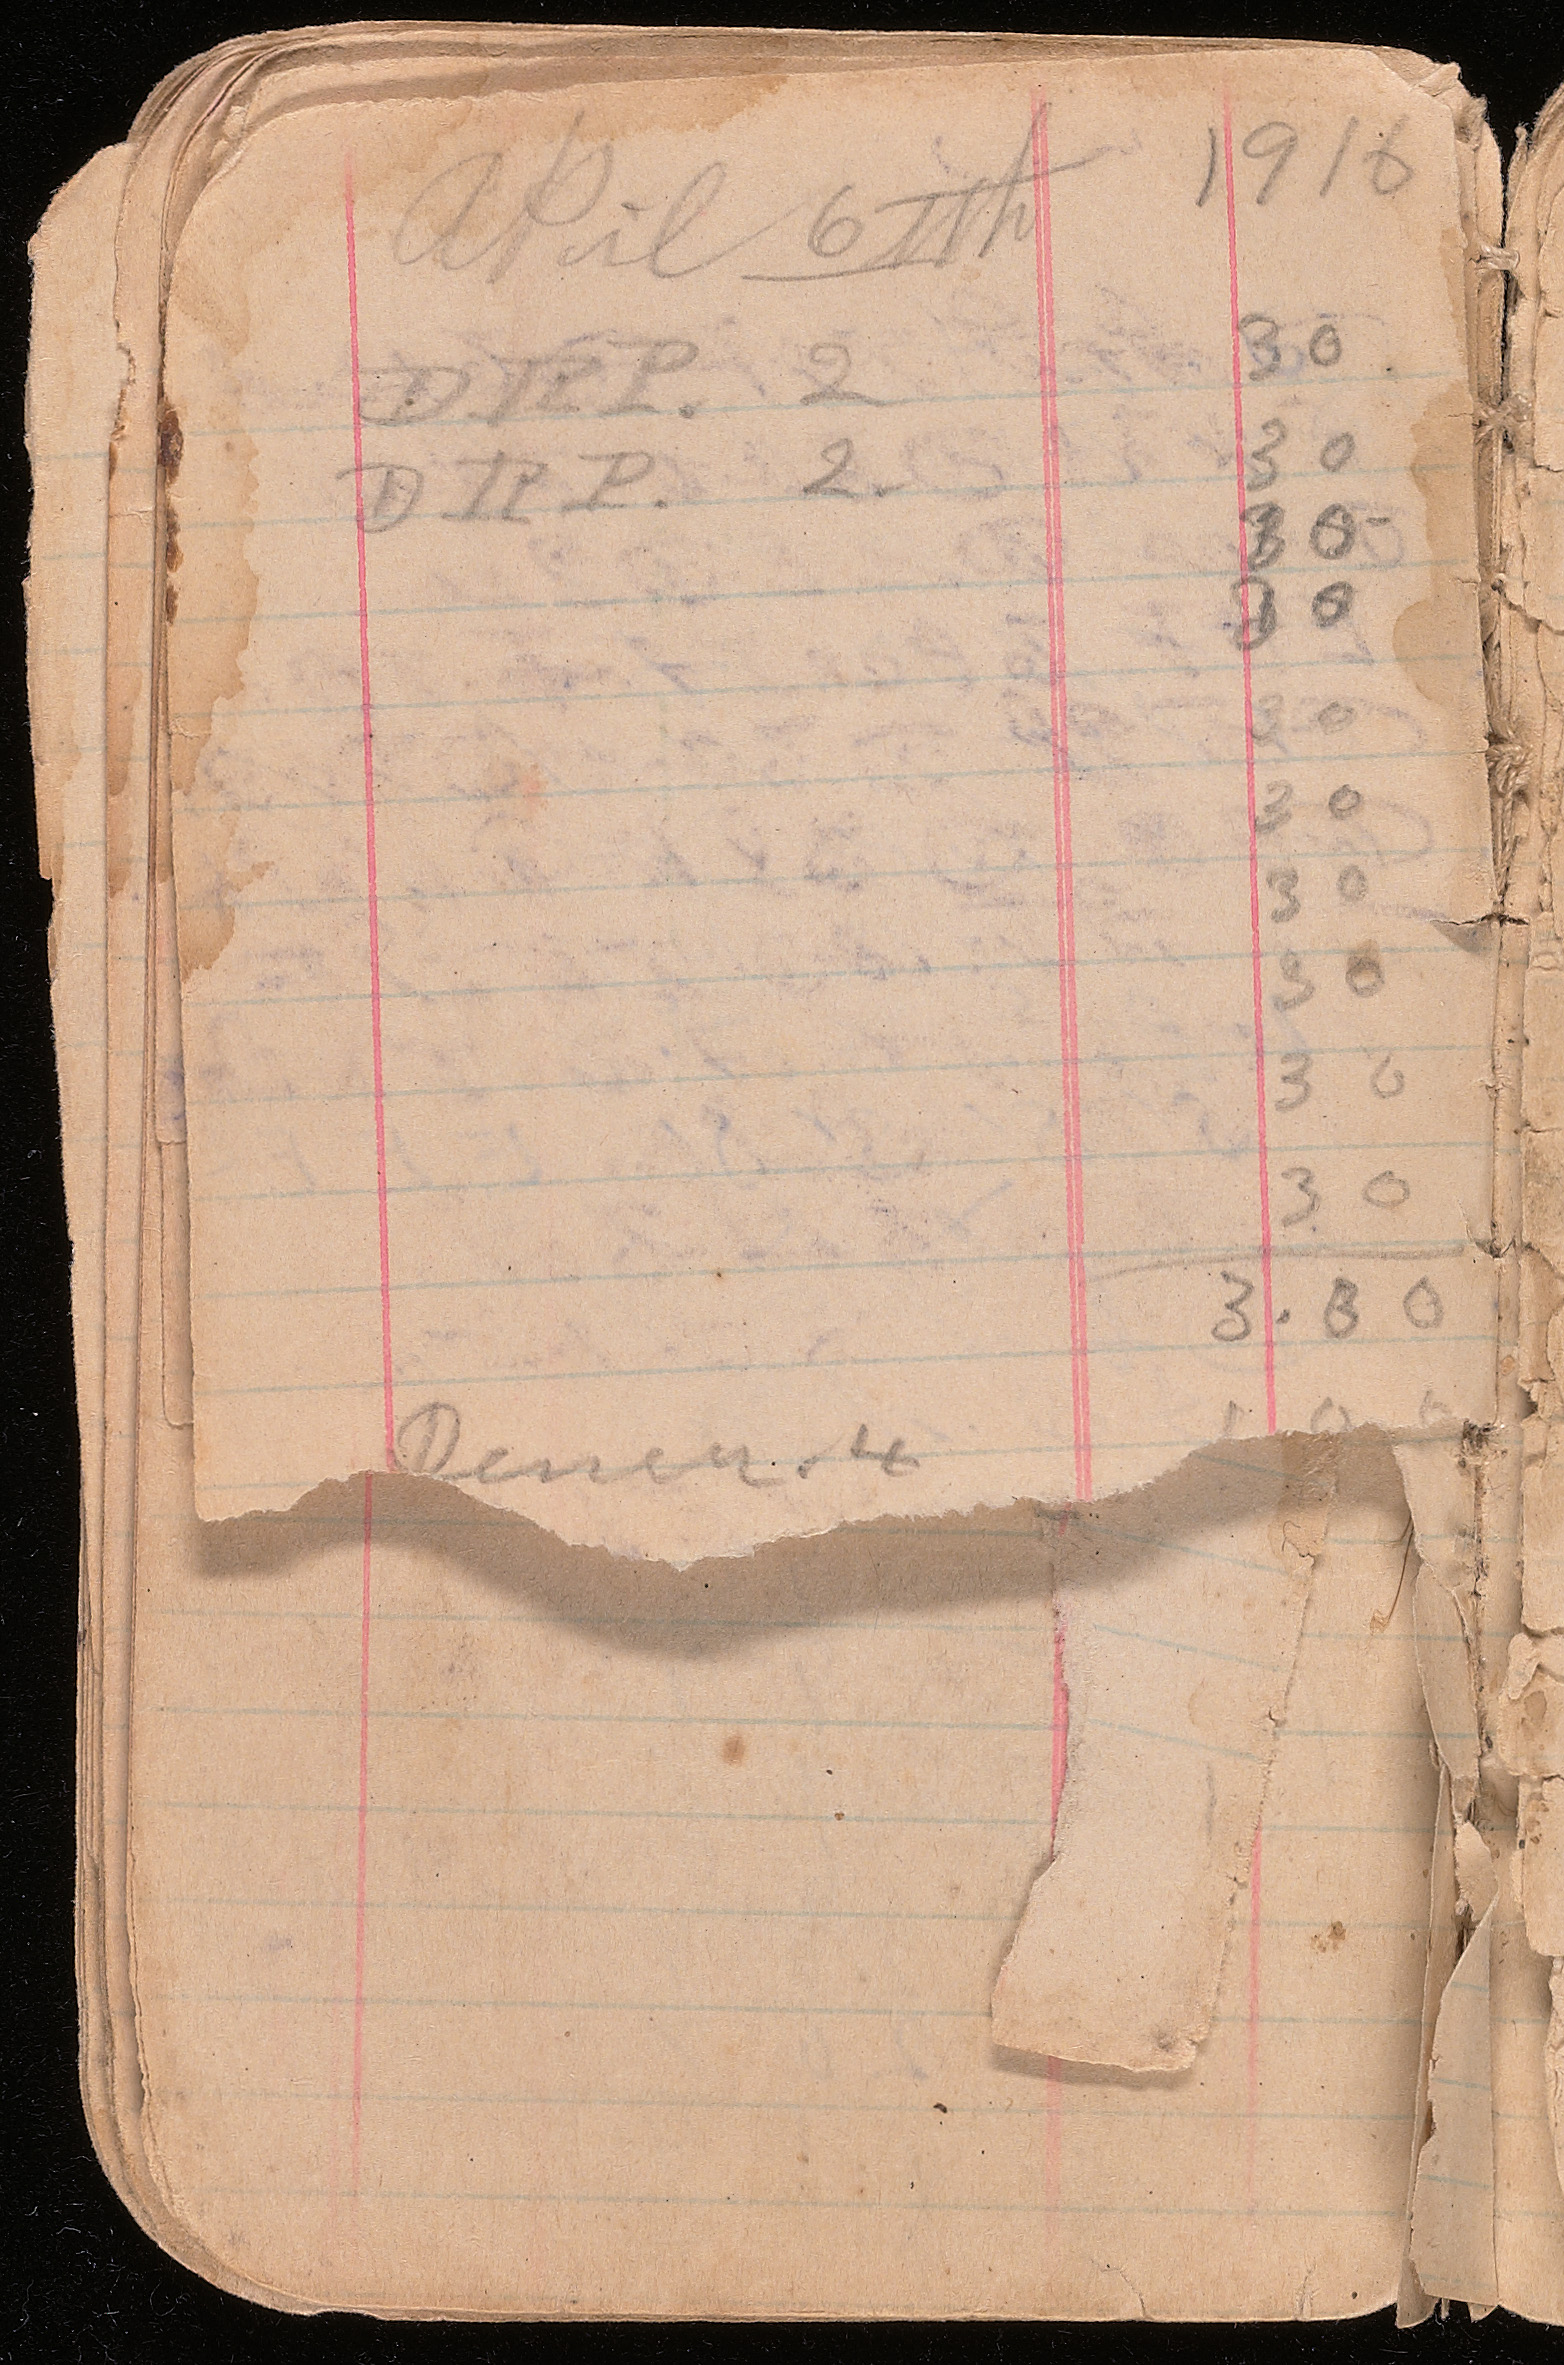 April 6th 1916
DTP. 2 30
DTP. 2. 30
30
30
30
30
30
30
30
30
3.30
4 100